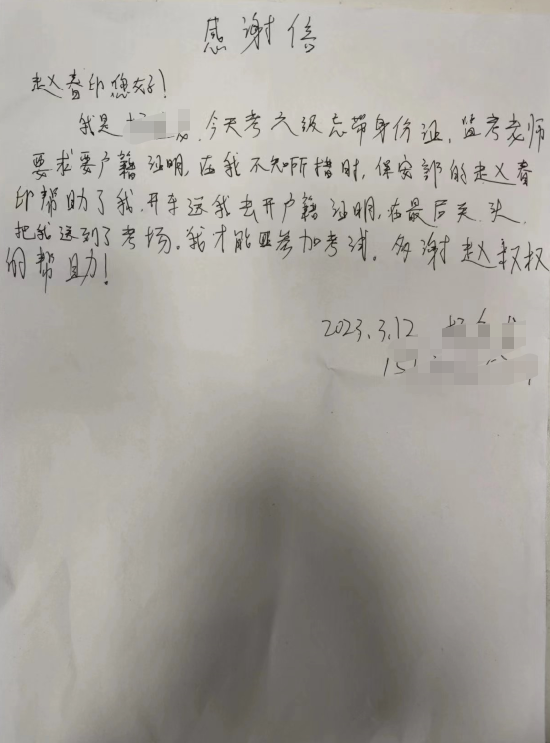 感谢信
赵春印您好！
我是 今天考六级忘带身份证，监考老师
要求要户籍证明，在我不知所措时，保安部的赵春
印帮助了我，开车送我去开户籍证明，在最后关头
把我送到了考场。我才能参加考试。多谢赵叔叔
的帮助！
2023.3.12
15